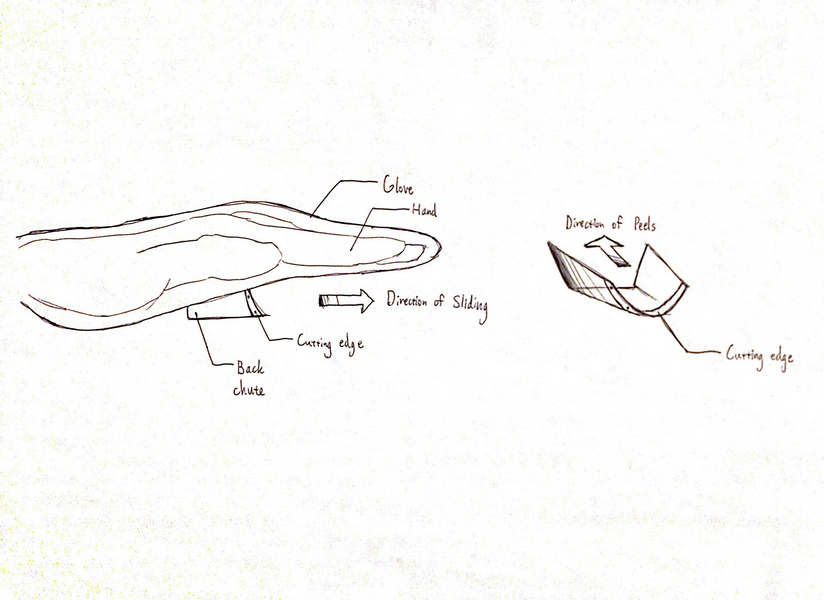 Glove
Hand
Direction of Sliding
Cutting edge
Back
chute
Direction of Peels
Cutting edge